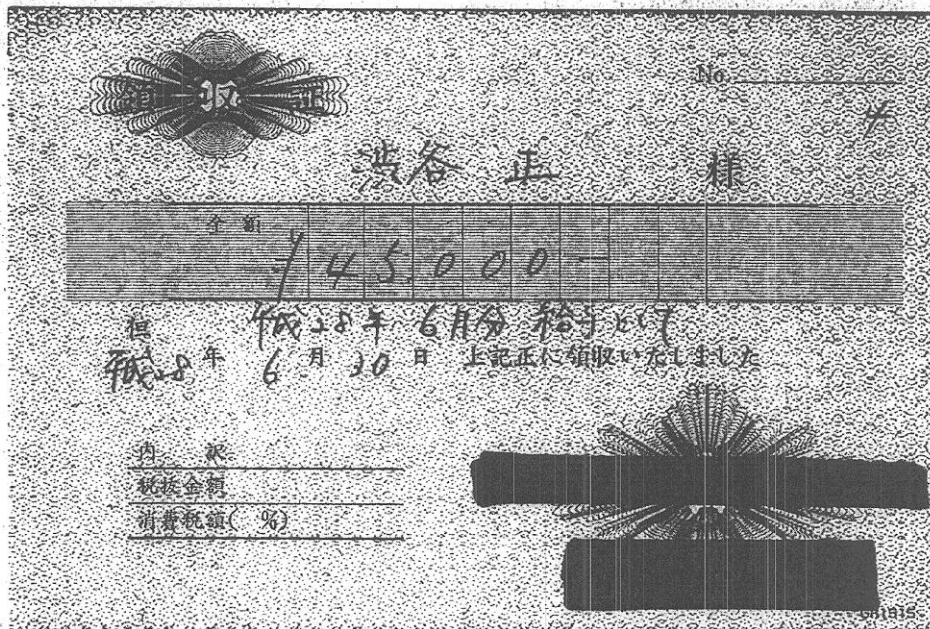 領収証
No.
4
渋谷 正 様
金額 ¥145,000-
但 平成28年 6月分 給与として
平成28年 6月 30日 上記正に領収いたしました
内 訳
税抜金額
消費税額( %)